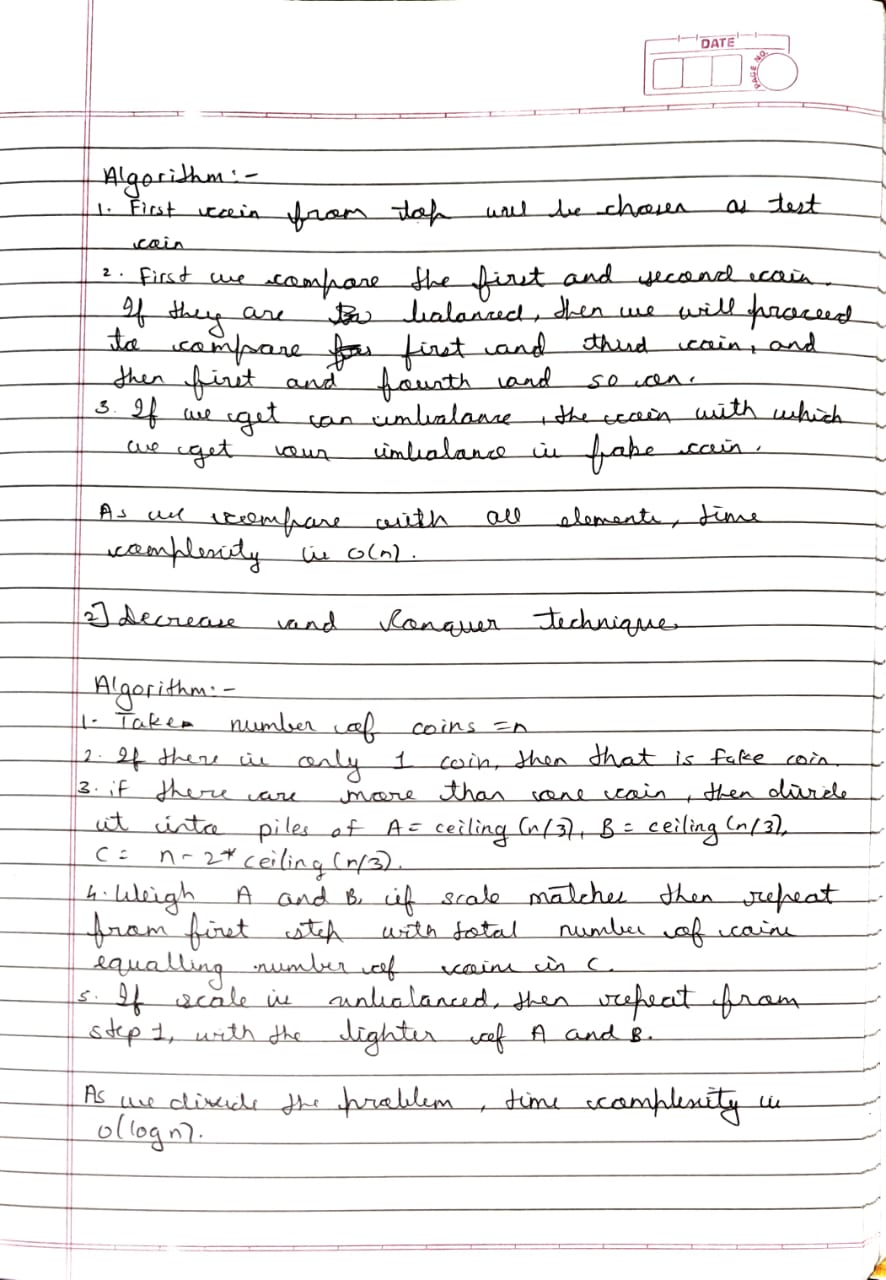 DATE
PAGE NO.
Algorithm:-
1. First coin from top will be chosen as test
coin
2. First we compare the first and second coin.
If they are balanced, then we will proceed
to compare first and third coin, and
then first and fourth and so on.
3. If we get an imbalance, the coin with which
we get our imbalance is fake coin.
As we compare with all elements, time
complexity is O(n).
2] Decrease and Conquer technique
Algorithm:-
1. Take number of coins = n
2. If there is only 1 coin, then that is fake coin.
3. if there are more than one coin, then divide
it into piles of A = ceiling (n/3), B = ceiling (n/3),
C = n - 2* ceiling (n/3).
4. Weigh A and B, if scale matches then repeat
from first step with total number of coins
equalling number of coins in C.
5. If scale is unbalanced, then repeat from
step 1, with the lighter of A and B.
As we divide the problem, time complexity is
O(log n).